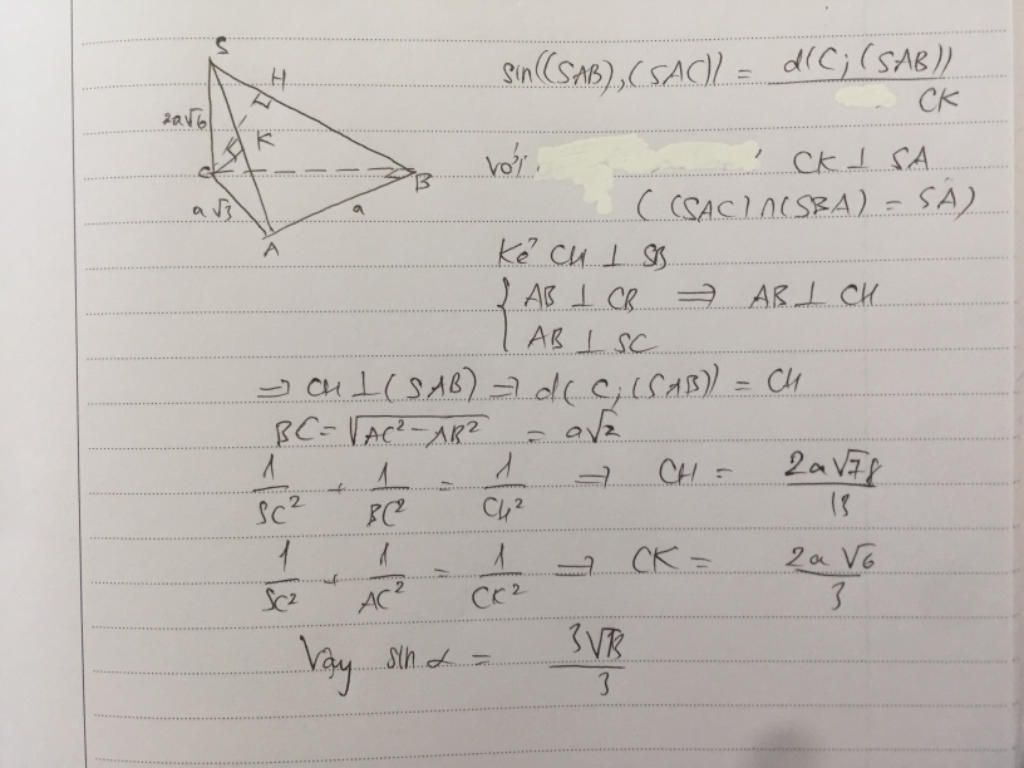 S
H
2a√6
K
C
B
a√3
a
A
sin((SAB),(SAC)) = d(C;(SAB)) / CK
Với CK ⊥ SA
((SAC)∩(SBA) = SA)
Kẻ CH ⊥ SB
{ AB ⊥ CB ⇒ AB ⊥ CH
AB ⊥ SC
⇒ CH ⊥ (SAB) ⇒ d(C;(SAB)) = CH
BC = √(AC² - AB²) = a√2
1/SC² + 1/BC² = 1/CH² ⇒ CH = 2a√78 / 13
1/SC² + 1/AC² = 1/CK² ⇒ CK = 2a√6 / 3
Vậy sin α = 3√13 / 3